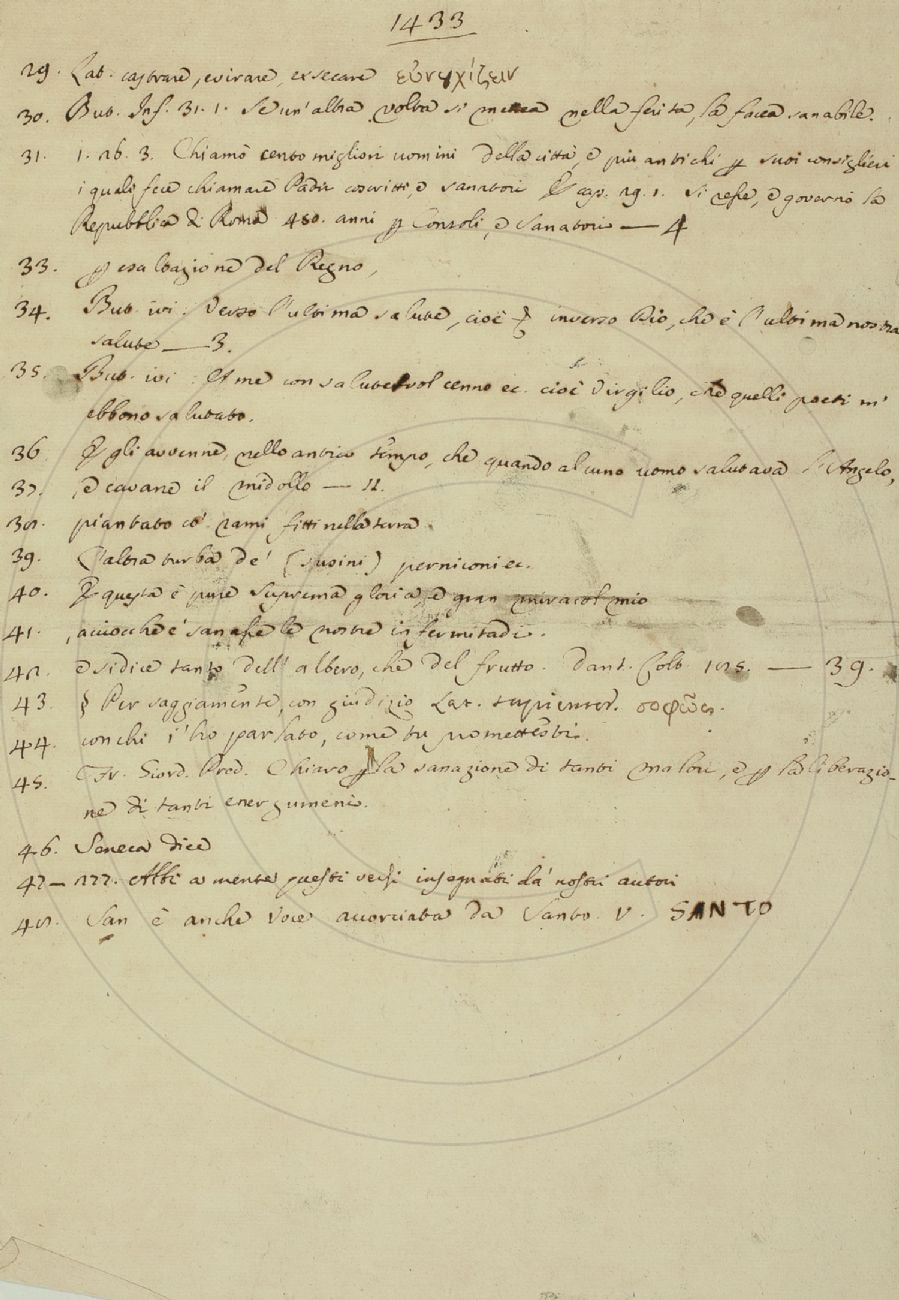 1433
29. Lat. castrare, evirare, exsecare εὐνουχίζειν
30. But. Inf. 31. 1. Se un' altra volta si metta nella ferita, la facea sanabile.
31. 1. 26. 3. Chiamò cento migliori uomini della città, e più antichi p suoi consiglieri
i quali fece chiamare Padri coscritti, e sanatori E cap. 29. 1. Si resse, e governò la
Repubblica di Roma 450. anni p Consoli, e Sanatori — 4
33. p esaltazione del Regno,
34. But. ivi. Verso l'ultima salute, cioè inverso Dio, che è l'ultima nostra
salute — 3.
35. But. ivi: Et me con salutevol cenno ec. cioè Virgilio, che quelli poeti m'
ebbono salutato.
36 E gli avvenne, nello antico tempo, che quando alcuno uomo salutava l'Angelo,
37. , e cavane il midollo — 11.
38. piantato co' rami fitti nella terra
39. L'altra turba de' (susini) perniconi ec.
40. E questa è pure suprema gloria, e gran miracol mio
41. , acciocchè e' sanasse le nostre infermitadi.
42. e si dice tanto dell' albero, che del frutto. Dant. Colt. 185. — 39.
43 § Per saggiamente, con giudizio Lat. sapienter. σοφῶς.
44. con chi i' ho parlato, come tu promettesti.
45. Fr. Giord. Pred. Chiaro p la sanazione di tanti malori, e p la liberazio-
ne di tanti energumeni.
46. Seneca dice
47— 277. Abbi a mente questi versi insegnati da' nostri autori
48. San è anche voce accorciata da Santo. V. SANTO